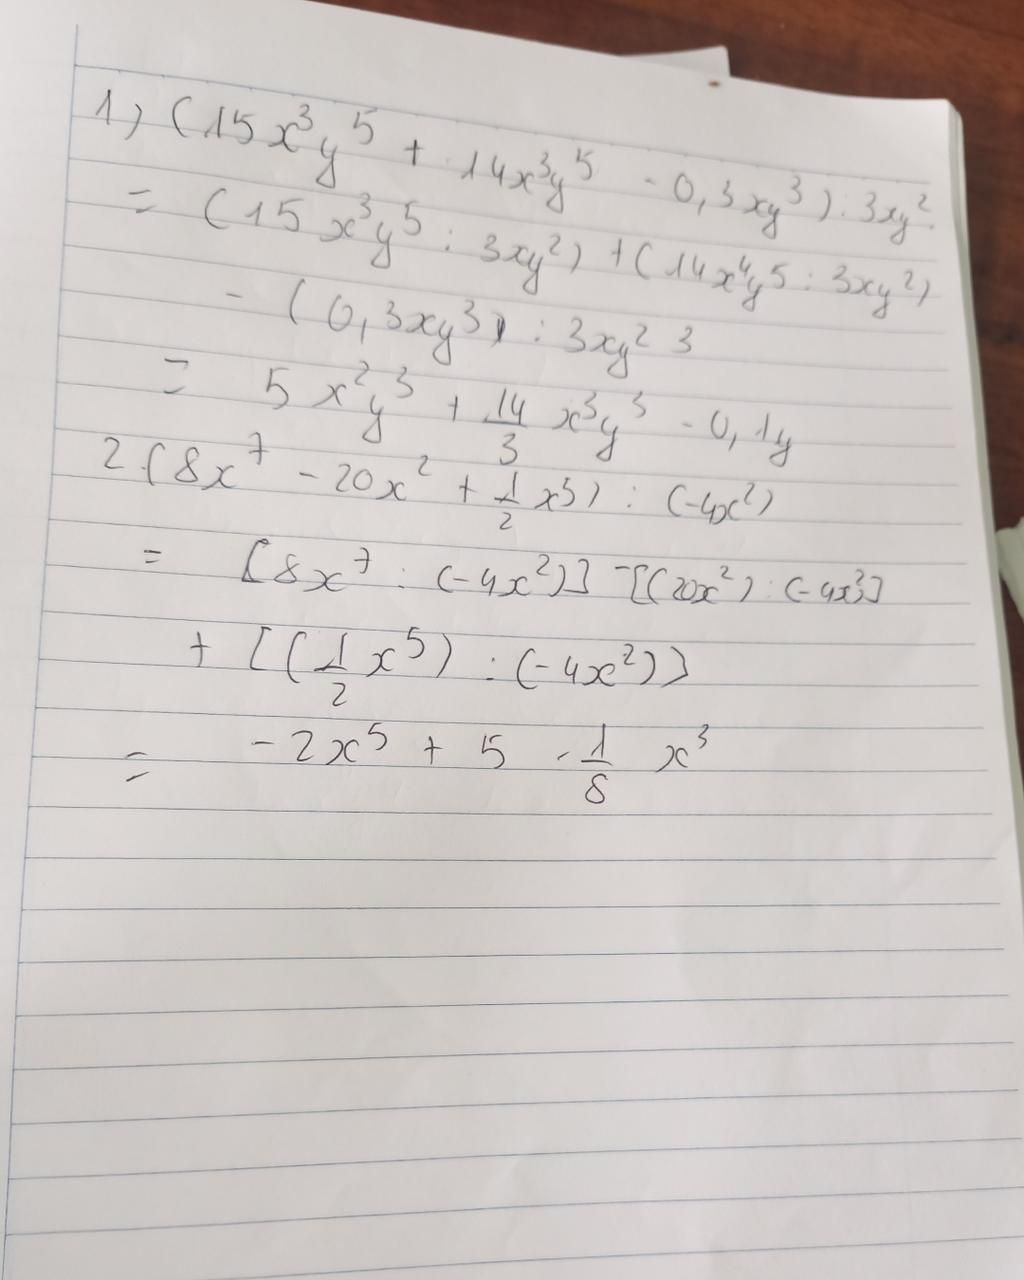 1) (15x³y⁵ + 14x³y⁵ - 0,3xy³) : 3xy².
= (15x³y⁵ : 3xy²) + (14x⁴y⁵ : 3xy²)
- (0,3xy³) : 3xy² 3
= 5x²y³ + 14/3 x³y³ - 0,1y
2 (8x⁷ - 20x² + 1/2 x⁵) : (-4x²)
= [8x⁷ : (-4x²)] - [(20x²) : (-4x²]
+ [(1/2 x⁵) : (-4x²)]
= -2x⁵ + 5 - 1/8 x³